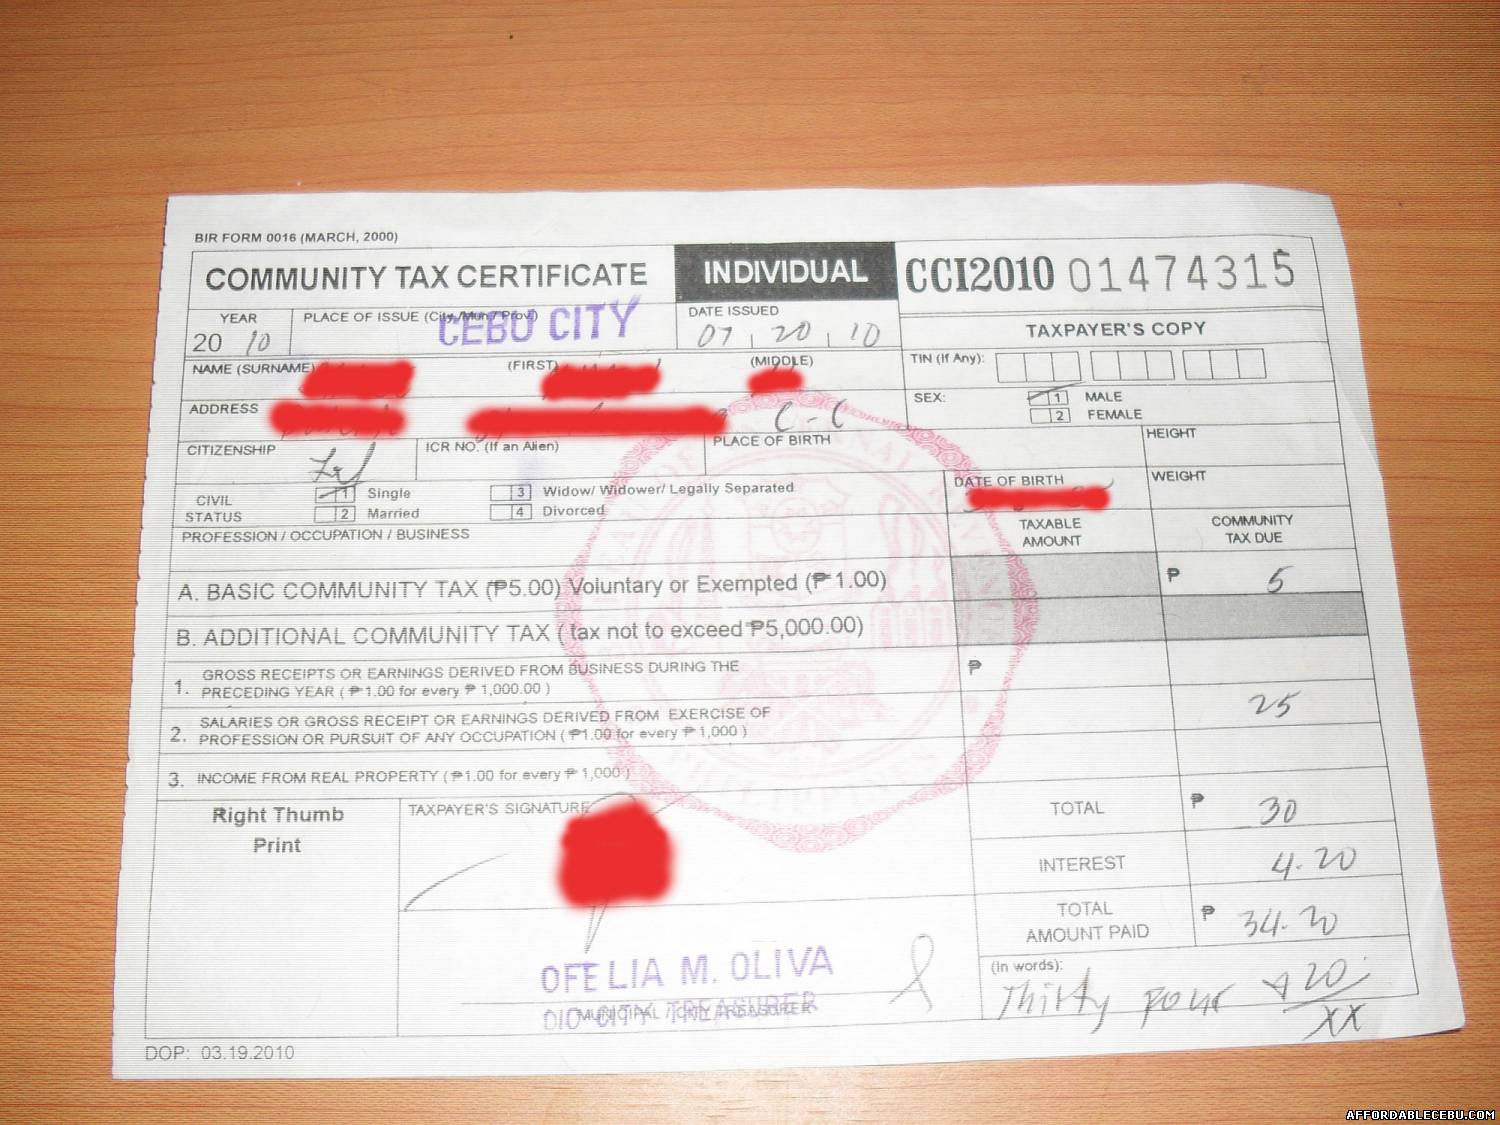 BIR FORM 0016 (MARCH, 2000)
COMMUNITY TAX CERTIFICATE INDIVIDUAL CCI2010 01474315
YEAR PLACE OF ISSUE (City/Mun/Prov.) DATE ISSUED TAXPAYER'S COPY
2010 CEBU CITY 07 20 10
NAME (SURNAME) (FIRST) (MIDDLE) TIN (If Any):
ADDRESS C-C SEX: 1 MALE
2 FEMALE
CITIZENSHIP ICR NO. (If an Alien) PLACE OF BIRTH HEIGHT
CIVIL STATUS 1 Single 3 Widow/ Widower/ Legally Separated DATE OF BIRTH WEIGHT
2 Married 4 Divorced
PROFESSION / OCCUPATION / BUSINESS TAXABLE AMOUNT COMMUNITY TAX DUE
A. BASIC COMMUNITY TAX (₱5.00) Voluntary or Exempted (₱1.00) ₱ 5
B. ADDITIONAL COMMUNITY TAX ( tax not to exceed ₱5,000.00)
1. GROSS RECEIPTS OR EARNINGS DERIVED FROM BUSINESS DURING THE ₱
PRECEDING YEAR ( ₱1.00 for every ₱ 1,000.00 )
2. SALARIES OR GROSS RECEIPT OR EARNINGS DERIVED FROM EXERCISE OF 25
PROFESSION OR PURSUIT OF ANY OCCUPATION ( ₱1.00 for every ₱ 1,000 )
3. INCOME FROM REAL PROPERTY ( ₱1.00 for every ₱ 1,000 )
Right Thumb Print TAXPAYER'S SIGNATURE TOTAL ₱ 30
INTEREST 4.20
TOTAL AMOUNT PAID ₱ 34.20
OFELIA M. OLIVA (In words):
OIC-CITY TREASURER Thirty four & 20/xx
MUNICIPAL / CITY TREASURER
DOP: 03.19.2010
AFFORDABLECEBU.COM